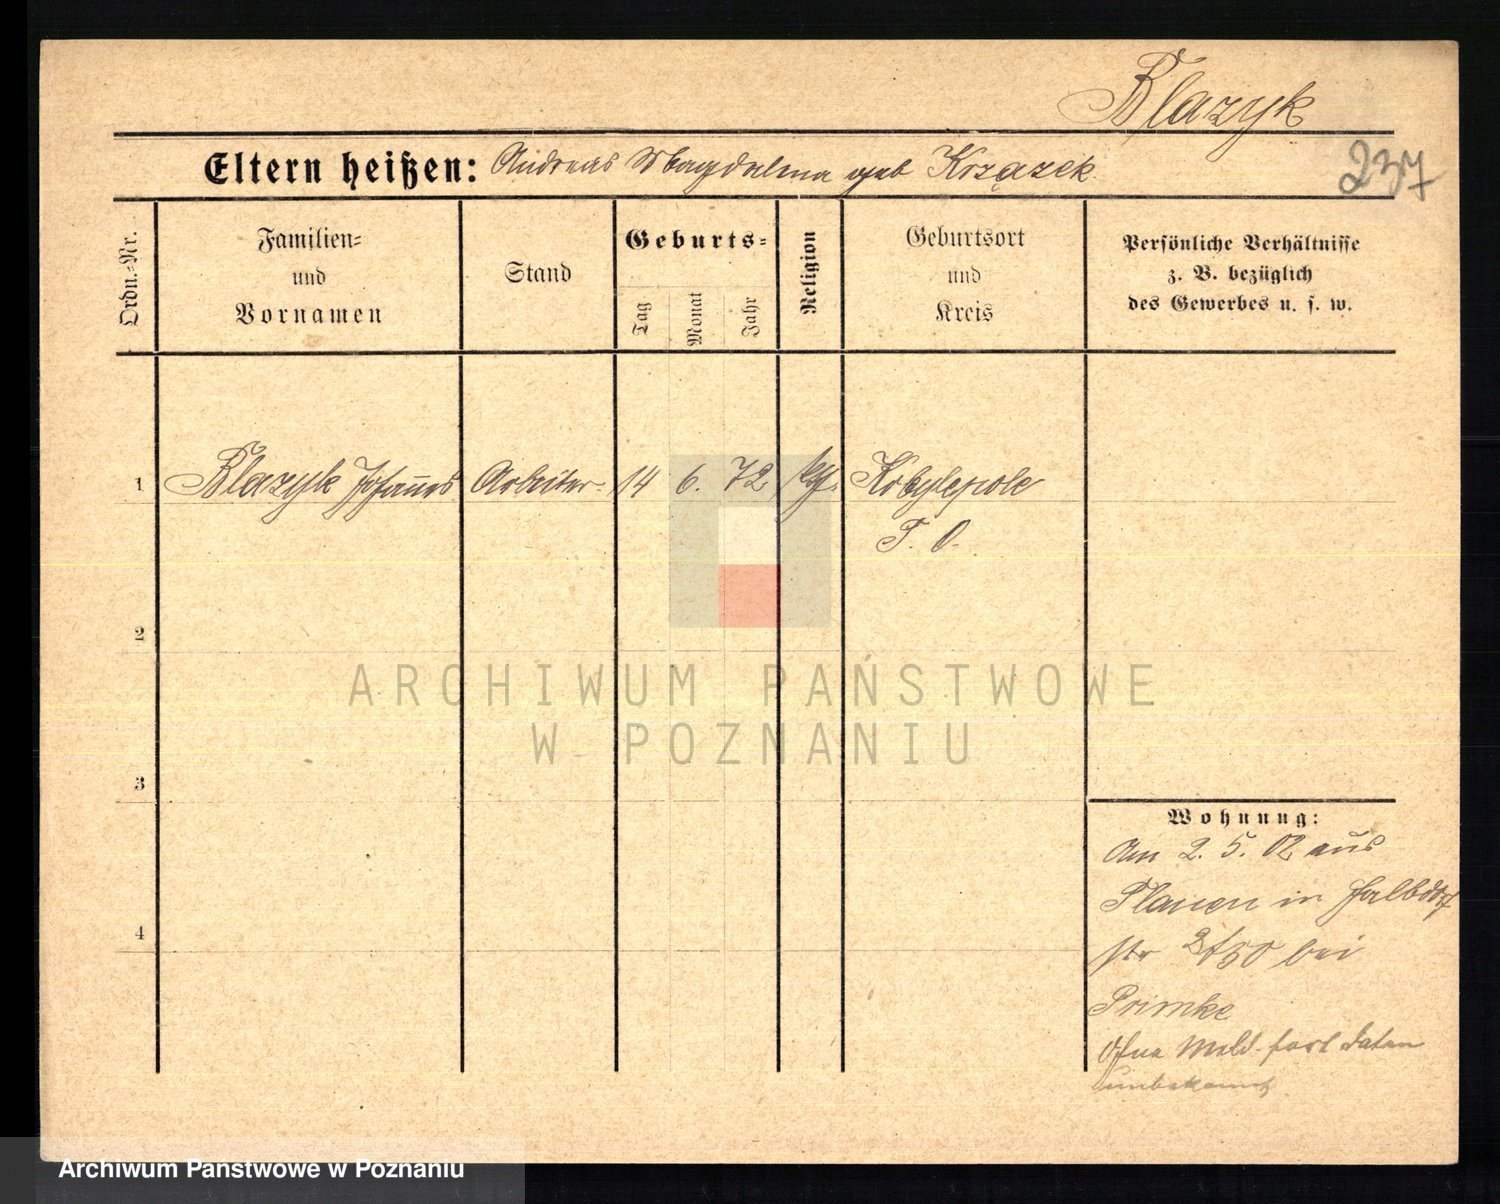 Blazyk
Eltern heißen: Andreas Magdalena geb Krzązek
237
Ordn.-Nr.
Familien-
und
Vornamen
Stand
Geburts-
Tag
Monat
Jahr
Religion
Geburtsort
und
Kreis
Persönliche Verhältnisse
z. B. bezüglich
des Gewerbes u. s. w.
1 Blazyk Johannes Arbeiter 14 6. 72 Kobylepole
P. O.
2
3
4
Wohnung:
Am 2. 5. 02 aus
Plauen in
str bei
Primke
Ohne Meld. fort
unbekannt
ARCHIWUM PAŃSTWOWE
W POZNANIU
Archiwum Państwowe w Poznaniu